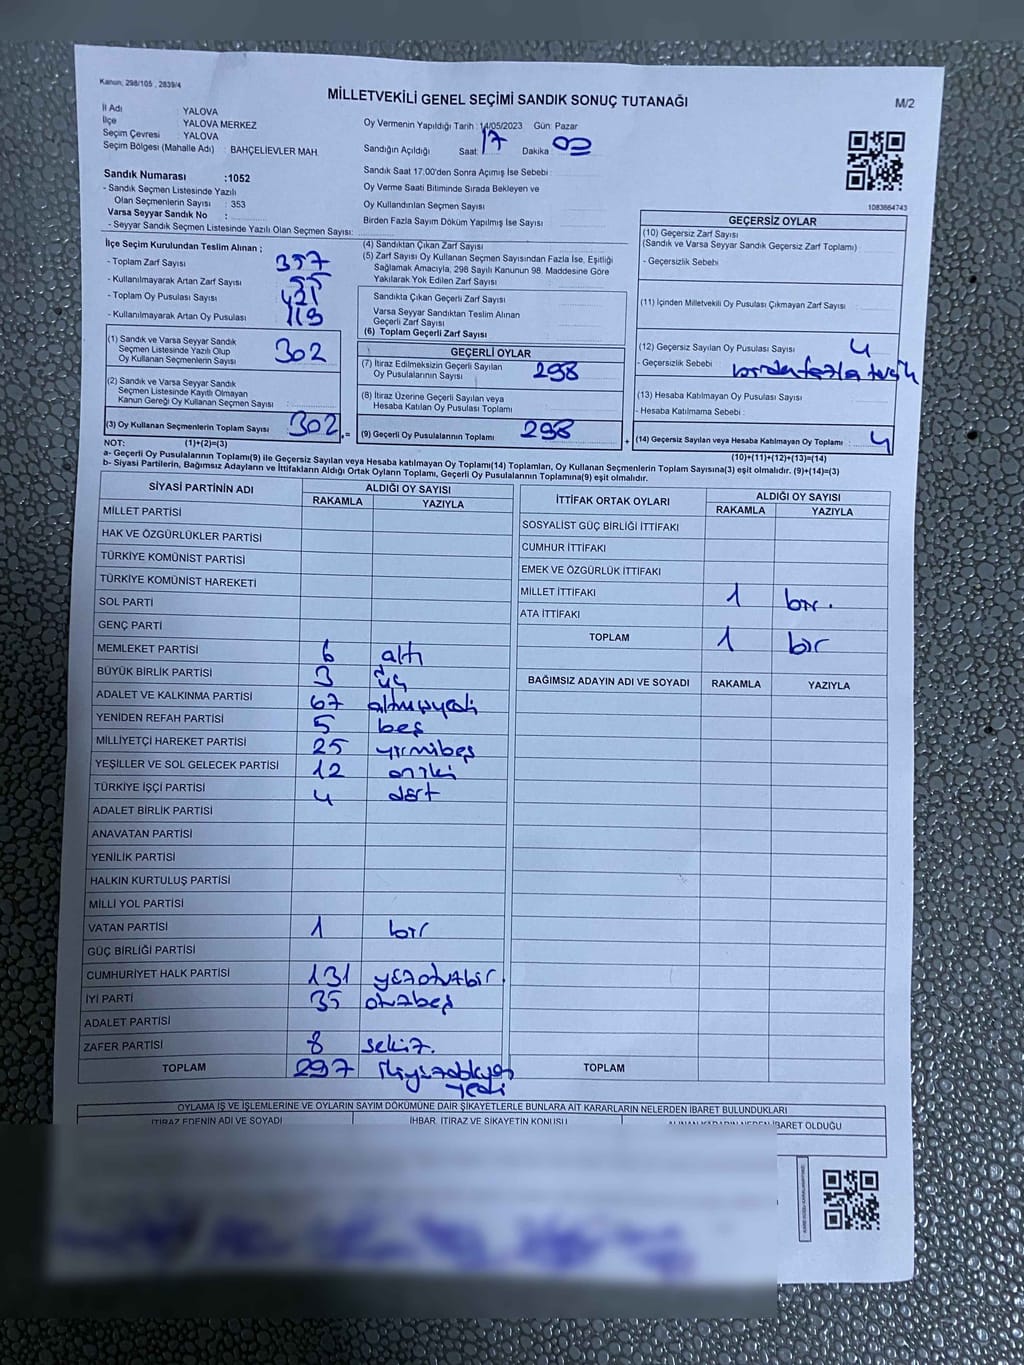 Kanun: 298/105 , 2839/4
MİLLETVEKİLİ GENEL SEÇİMİ SANDIK SONUÇ TUTANAĞI
M/2
İl Adı : YALOVA
İlçe : YALOVA MERKEZ
Seçim Çevresi : YALOVA
Seçim Bölgesi (Mahalle Adı) : BAHÇELİEVLER MAH.
Oy Vermenin Yapıldığı Tarih : 14/05/2023 Gün: Pazar
Sandığın Açıldığı Saat: 17 Dakika: 00
Sandık Saat 17.00'den Sonra Açımış İse Sebebi :
Oy Verme Saati Bitiminde Sırada Bekleyen ve
Oy Kullandırılan Seçmen Sayısı :
Birden Fazla Sayım Döküm Yapılmış İse Sayısı :
1083664743
Sandık Numarası :1052
- Sandık Seçmen Listesinde Yazılı
Olan Seçmenlerin Sayısı : 353
Varsa Seyyar Sandık No :
- Seyyar Sandık Seçmen Listesinde Yazılı Olan Seçmen Sayısı:
İlçe Seçim Kurulundan Teslim Alınan ;
- Toplam Zarf Sayısı 357
- Kullanılmayarak Artan Zarf Sayısı 55
- Toplam Oy Pusulası Sayısı 421
- Kullanılmayarak Artan Oy Pusulası 119
(1) Sandık ve Varsa Seyyar Sandık
Seçmen Listesinde Yazılı Olup
Oy Kullanan Seçmenlerin Sayısı 302
(2) Sandık ve Varsa Seyyar Sandık
Seçmen Listesinde Kayıtlı Olmayan
Kanun Gereği Oy Kullanan Seçmen Sayısı :
(3) Oy Kullanan Seçmenlerin Toplam Sayısı 302 =
(4) Sandıktan Çıkan Zarf Sayısı
(5) Zarf Sayısı Oy Kullanan Seçmen Sayısından Fazla İse, Eşitliği
Sağlamak Amacıyla, 298 Sayılı Kanunun 98. Maddesine Göre
Yakılarak Yok Edilen Zarf Sayısı
Sandıkta Çıkan Geçerli Zarf Sayısı
Varsa Seyyar Sandıktan Teslim Alınan
Geçerli Zarf Sayısı
(6) Toplam Geçerli Zarf Sayısı
GEÇERLİ OYLAR
(7) İtiraz Edilmeksizin Geçerli Sayılan
Oy Pusulalarının Sayısı 298
(8) İtiraz Üzerine Geçerli Sayılan veya
Hesaba Katılan Oy Pusulası Toplamı
(9) Geçerli Oy Pusulalarının Toplamı 298 +
GEÇERSİZ OYLAR
(10) Geçersiz Zarf Sayısı
(Sandık ve Varsa Seyyar Sandık Geçersiz Zarf Toplamı)
- Geçersizlik Sebebi
(11) İçinden Milletvekili Oy Pusulası Çıkmayan Zarf Sayısı
(12) Geçersiz Sayılan Oy Pusulası Sayısı 4
- Geçersizlik Sebebi birden fazla
(13) Hesaba Katılmayan Oy Pusulası Sayısı :
- Hesaba Katılmama Sebebi :
(14) Geçersiz Sayılan veya Hesaba Katılmayan Oy Toplamı : 4
NOT: (1)+(2)=(3)
(10)+(11)+(12)+(13)=(14)
a- Geçerli Oy Pusulalarının Toplamı(9) ile Geçersiz Sayılan veya Hesaba katılmayan Oy Toplamı(14) Toplamları, Oy Kullanan Seçmenlerin Toplam Sayısına(3) eşit olmalıdır. (9)+(14)=(3)
b- Siyasi Partilerin, Bağımsız Adayların ve İttifakların Aldığı Ortak Oyların Toplamı, Geçerli Oy Pusulalarının Toplamına(9) eşit olmalıdır.
SİYASİ PARTİNİN ADI
ALDIĞI OY SAYISI
RAKAMLA YAZIYLA
MİLLET PARTİSİ
HAK VE ÖZGÜRLÜKLER PARTİSİ
TÜRKİYE KOMÜNİST PARTİSİ
TÜRKİYE KOMÜNİST HAREKETİ
SOL PARTİ
GENÇ PARTİ
MEMLEKET PARTİSİ 6 altı
BÜYÜK BİRLİK PARTİSİ 3 üç
ADALET VE KALKINMA PARTİSİ 67 altmışyedi
YENİDEN REFAH PARTİSİ 5 beş
MİLLİYETÇİ HAREKET PARTİSİ 25 yirmibeş
YEŞİLLER VE SOL GELECEK PARTİSİ 12 oniki
TÜRKİYE İŞÇİ PARTİSİ 4 dört
ADALET BİRLİK PARTİSİ
ANAVATAN PARTİSİ
YENİLİK PARTİSİ
HALKIN KURTULUŞ PARTİSİ
MİLLİ YOL PARTİSİ
VATAN PARTİSİ 1 bir
GÜÇ BİRLİĞİ PARTİSİ
CUMHURİYET HALK PARTİSİ 131 yüzotuzbir.
İYİ PARTİ 35 otuzbeş
ADALET PARTİSİ
ZAFER PARTİSİ 8 sekiz.
TOPLAM 297 ikiyüzdoksan
yedi
İTTİFAK ORTAK OYLARI
ALDIĞI OY SAYISI
RAKAMLA YAZIYLA
SOSYALİST GÜÇ BİRLİĞİ İTTİFAKI
CUMHUR İTTİFAKI
EMEK VE ÖZGÜRLÜK İTTİFAKI
MİLLET İTTİFAKI 1 bir.
ATA İTTİFAKI
TOPLAM 1 bir
BAĞIMSIZ ADAYIN ADI VE SOYADI RAKAMLA YAZIYLA
TOPLAM
OYLAMA İŞ VE İŞLEMLERİNE VE OYLARIN SAYIM DÖKÜMÜNE DAİR ŞİKAYETLERLE BUNLARA AİT KARARLARIN NELERDEN İBARET BULUNDUKLARI
İTİRAZ EDENİN ADI VE SOYADI
İHBAR, İTİRAZ VE ŞİKAYETİN KONUSU
ALINAN KARARIN NEDEN İBARET OLDUĞU